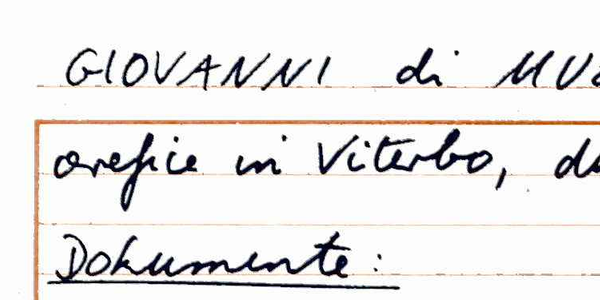 GIOVANNI di
orefice in Viterbo,
Dokumente: